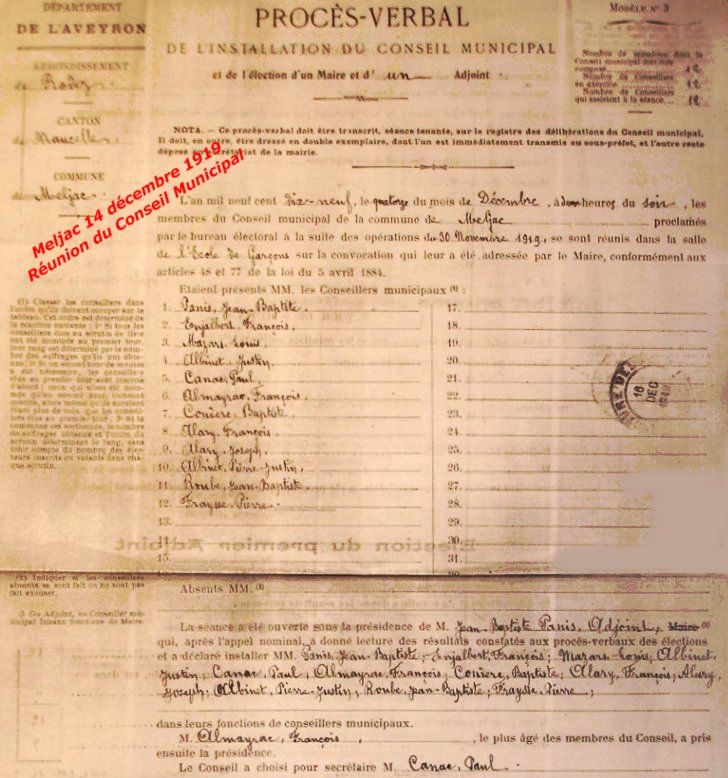 DÉPARTEMENT
DE L'AVEYRON
ARRONDISSEMENT
de Rodez
CANTON
de Naucelle
COMMUNE
de Meljac
PROCÈS-VERBAL
DE L'INSTALLATION DU CONSEIL MUNICIPAL
et de l'élection d'un Maire et d' un Adjoint
MODÈLE N° 3
Nombre de membres dont le
Conseil municipal doit être
composé 12
Nombre de Conseillers
en exercice 12
Nombre de Conseillers
qui assistent à la séance 12
NOTA — Ce procès-verbal doit être transcrit, séance tenante, sur le registre des délibérations du Conseil municipal.
Il doit, en outre, être dressé en double exemplaire, dont l'un est immédiatement transmis au sous-préfet, et l'autre reste
déposé au secrétariat de la mairie.
Meljac 14 décembre 1919
Réunion du Conseil Municipal
L'an mil neuf cent dix-neuf, le quatorze du mois de Décembre, à heures du soir, les
membres du Conseil municipal de la commune de Meljac proclamés
par le bureau électoral à la suite des opérations du 30 Novembre 1919, se sont réunis dans la salle
de l'Ecole de Garçons sur la convocation qui leur a été adressée par le Maire, conformément aux
articles 48 et 77 de la loi du 5 avril 1884.
Etaient présents MM. les Conseillers municipaux (1) :
1. Panis, Jean-Baptiste.
2. Enjalbert, François.
3. Mazars, Louis.
4. Albinet, Justin.
5. Canac, Paul.
6. Almayrac, François.
7. Couière, Baptiste.
8. Alary, François.
9. Alary, Joseph.
10. Albinet, Pierre-Justin.
11. Roube, Jean-Baptiste.
12. Fraysse, Pierre.
13.
14.
15.
17.
18.
19.
20.
21.
22.
23.
24.
25.
26.
27.
28.
29.
30.
31.
16
DEC
(1) Classer les conseillers dans
l'ordre qu'ils doivent occuper sur le
tableau. Cet ordre est déterminé de
la manière suivante : 1° Si tous les
conseillers élus au scrutin de liste
ont été nommés au premier tour,
leur rang est déterminé par le nom-
bre des suffrages qu'ils ont obte-
nus. 2° Si un second tour de scrutin
a été nécessaire, les conseillers
élus au premier tour sont inscrits
d'abord ; ceux qui n'ont été nom-
més qu'au second tour, viennent
ensuite, alors même qu'ils auraient
réuni plus de voix que les conseil-
lers élus au premier tour. 3° Si la
commune est sectionnée, le nombre
de suffrages obtenus et l'ordre du
scrutin déterminent le rang, sans
tenir compte du nombre des élec-
teurs inscrits ou votants dans cha-
que scrutin.
Election du premier Adjoint
(2) Indiquer si les conseillers
absents se sont fait ou ne sont pas
fait excuser.
3 Ou Adjoint, ou Conseiller mu-
nicipal faisant fonctions de Maire.
Absents MM. (2)
La séance a été ouverte sous la présidence de M. Jean-Baptiste Panis, Adjoint, Maire (3)
qui, après l'appel nominal, a donné lecture des résultats constatés aux procès-verbaux des élections
et a déclaré installer MM. Panis, Jean-Baptiste ; Enjalbert, François ; Mazars, Louis ; Albinet,
Justin ; Canac, Paul ; Almayrac, François ; Couière, Baptiste ; Alary, François ; Alary,
Joseph ; Albinet, Pierre-Justin ; Roube, Jean-Baptiste ; Fraysse, Pierre ;
dans leurs fonctions de conseillers municipaux.
M. Almayrac, François, le plus âgé des membres du Conseil, a pris
ensuite la présidence.
Le Conseil a choisi pour secrétaire M. Canac, Paul.